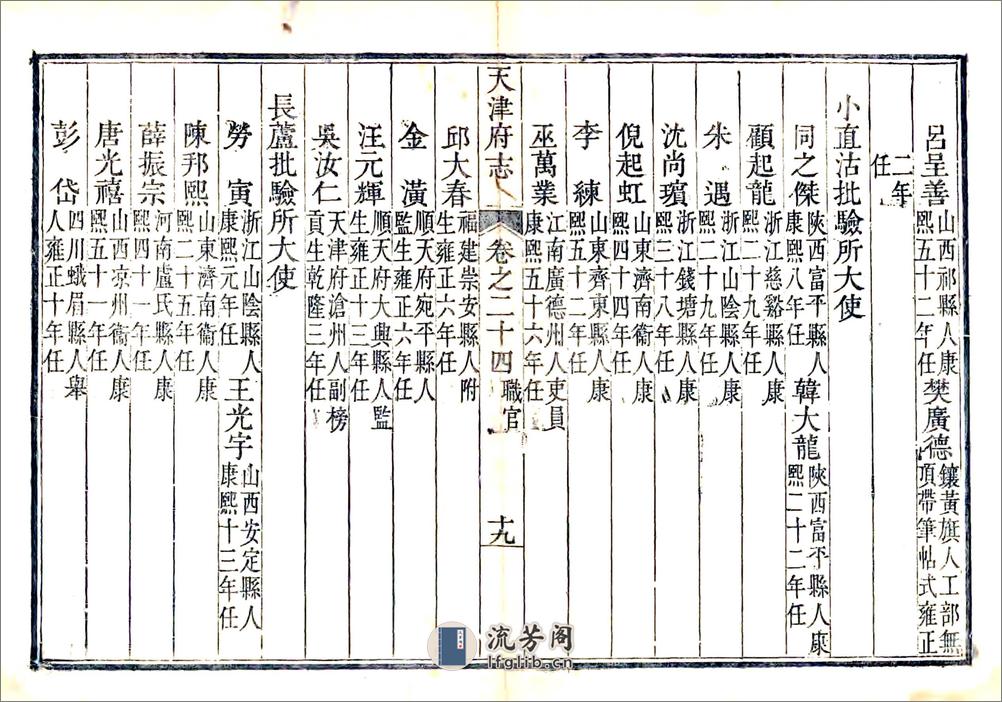 呂呈善山西祁縣人康熙五十二年任樊廣德鑲黃旗人工部無頂帶筆帖式雍正
二年任
小直沽批驗所大使
同之傑陝西富平縣人康熙八年任韓大龍陝西富平縣人康熙二十二年任
顧起龍浙江慈谿縣人康熙二十九年任
朱遇浙江山陰縣人康熙二十九年任
沈尚璸浙江錢塘縣人康熙三十八年任
倪起虹山東濟南衞人康熙四十四年任
李練山東齊東縣人康熙五十二年任
巫萬業江南廣德州人吏員康熙五十六年任
天津府志卷之二十四職官十九
邱大春福建崇安縣人附生雍正六年任
金潢順天府宛平縣人監生雍正六年任
汪元輝順天府大興縣人監生雍正十三年任
吳汝仁天津府滄州人副榜貢生乾隆三年任
長蘆批驗所大使
勞寅浙江山陰縣人康熙元年任王光宇山西安定縣人康熙十三年任
陳邦熙山東濟南衞人康熙二十五年任
薛振宗河南盧氏縣人康熙四十一年任
唐光禧山西凉州衞人康熙五十一年任
彭岱四川蛾眉縣人舉人雍正十年任
流芳阁
lfglib.cn